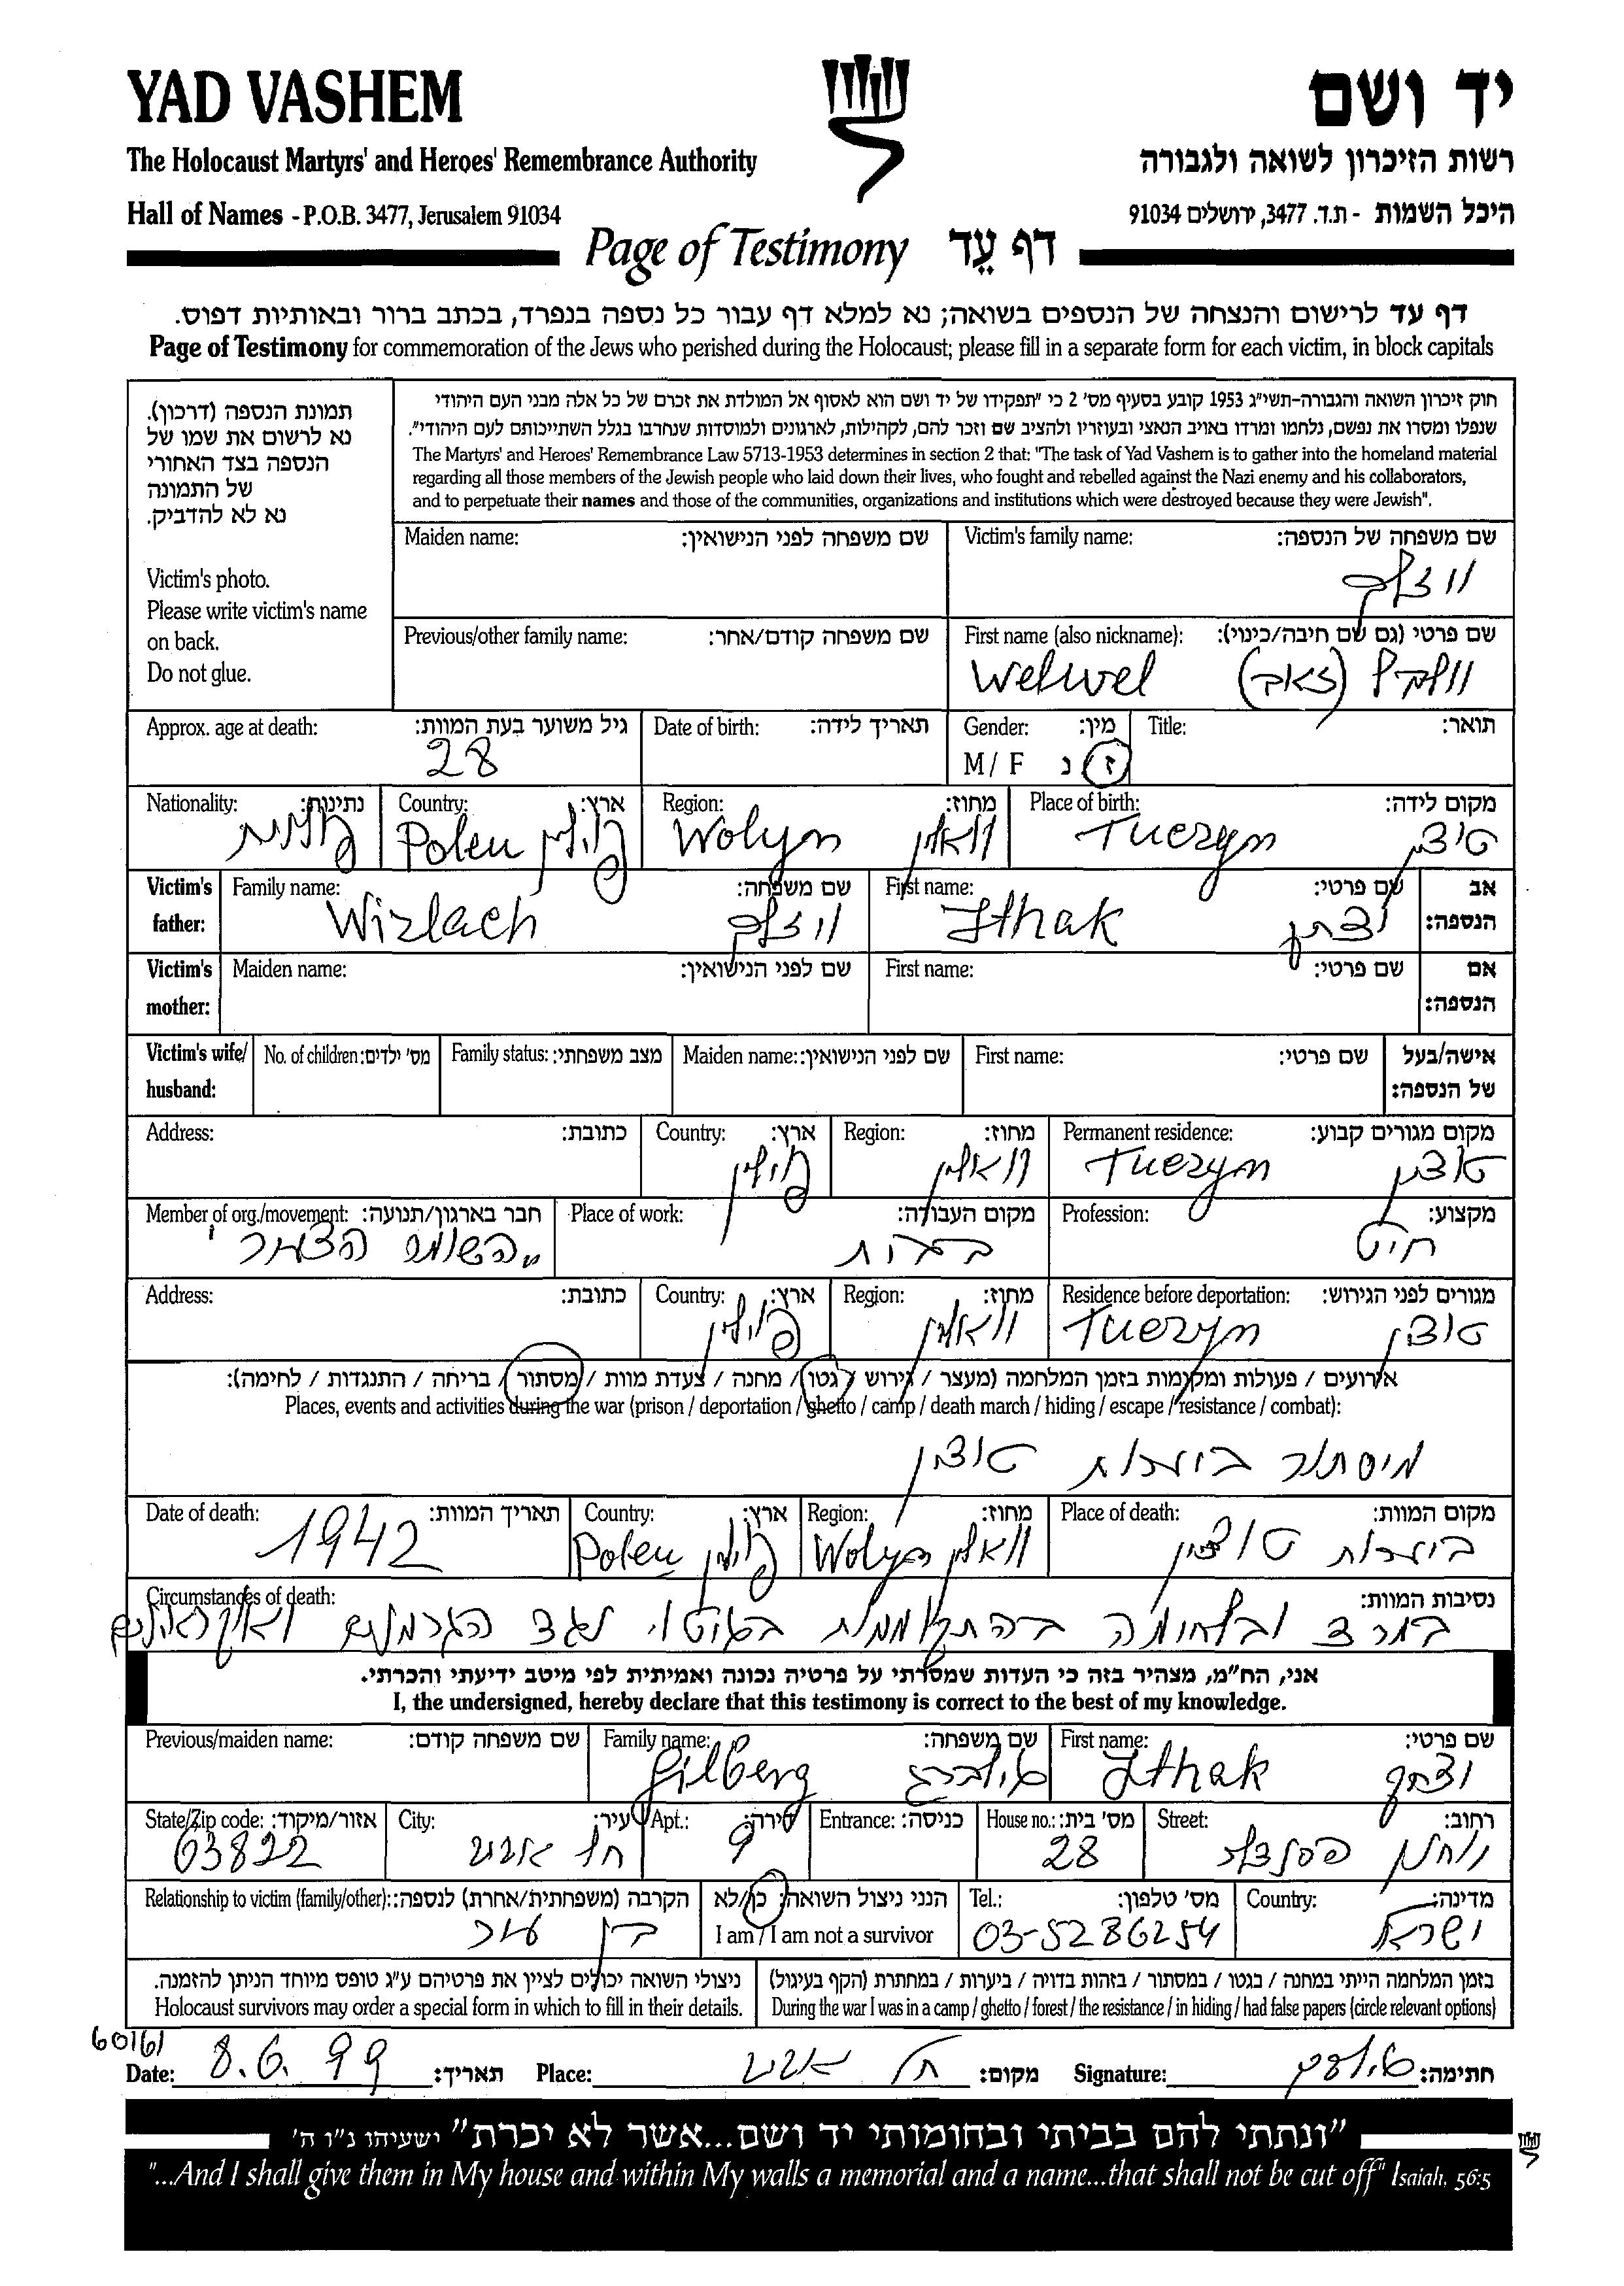 YAD VASHEM
יד ושם
The Holocaust Martyrs' and Heroes' Remembrance Authority
רשות הזיכרון לשואה ולגבורה
Hall of Names - P.O.B. 3477, Jerusalem 91034
היכל השמות - ת.ד. 3477, ירושלים 91034
Page of Testimony דף עֵד
דף עד לרישום והנצחה של הנספים בשואה; נא למלא דף עבור כל נספה בנפרד, בכתב ברור ובאותיות דפוס.
Page of Testimony for commemoration of the Jews who perished during the Holocaust; please fill in a separate form for each victim, in block capitals
תמונת הנספה (דרכון).
נא לרשום את שמו של
הנספה בצד האחורי
של התמונה
נא לא להדביק.
Victim's photo.
Please write victim's name
on back.
Do not glue.
חוק זיכרון השואה והגבורה-תשי"ג 1953 קובע בסעיף מס' 2 כי "תפקידו של יד ושם הוא לאסוף אל המולדת את זכרם של כל אלה מבני העם היהודי
שנפלו ומסרו את נפשם, נלחמו ומרדו באויב הנאצי ובעוזריו ולהציב שם וזכר להם, לקהילות, לארגונים ולמוסדות שנחרבו בגלל השתייכותם לעם היהודי".
The Martyrs' and Heroes' Remembrance Law 5713-1953 determines in section 2 that: "The task of Yad Vashem is to gather into the homeland material
regarding all those members of the Jewish people who laid down their lives, who fought and rebelled against the Nazi enemy and his collaborators,
and to perpetuate their names and those of the communities, organizations and institutions which were destroyed because they were Jewish".
Maiden name: שם משפחה לפני הנישואין:
Victim's family name: שם משפחה של הנספה:
ויזלך
Previous/other family name: שם משפחה קודם/אחר:
First name (also nickname): שם פרטי (גם שם חיבה/כינוי):
Welwel וולבל (זאב)
Approx. age at death: גיל משוער בעת המוות:
28
Date of birth: תאריך לידה:
Gender: מין:
M / F ז נ
Title: תואר:
Nationality: נתינות:
פולנית
Country: ארץ:
Polen פולין
Region: מחוז:
Wolyn וואלין
Place of birth: מקום לידה:
Tuczyn טוצין
Victim's father: אב הנספה:
Family name: שם משפחה:
Wizlach ויזלך
First name: שם פרטי:
Ithak יצחק
Victim's mother: אם הנספה:
Maiden name: שם לפני הנישואין:
First name: שם פרטי:
Victim's wife/ husband: אישה/בעל של הנספה:
No. of children: מס' ילדים:
Family status: מצב משפחתי:
Maiden name: שם לפני הנישואין:
First name: שם פרטי:
Address: כתובת:
Country: ארץ:
פולין
Region: מחוז:
וואלין
Permanent residence: מקום מגורים קבוע:
Tuczyn טוצין
Member of org./movement: חבר בארגון/תנועה:
"השומר הצעיר"
Place of work: מקום העבודה:
Profession: מקצוע:
חייט
Address: כתובת:
Country: ארץ:
פולין
Region: מחוז:
וואלין
Residence before deportation: מגורים לפני הגירוש:
Tuczyn טוצין
אירועים / פעולות ומקומות בזמן המלחמה (מעצר / גירוש / גטו / מחנה / צעדת מוות / מסתור / בריחה / התנגדות / לחימה):
Places, events and activities during the war (prison / deportation / ghetto / camp / death march / hiding / escape / resistance / combat):
מיסתור ביערות טוצין
Date of death: תאריך המוות:
1942
Country: ארץ:
Polen פולין
Region: מחוז:
Wolyn וואלין
Place of death: מקום המוות:
ביערות טוצין
Circumstances of death: נסיבות המוות:
במרד ובלחימה בהתקוממות בגיטו נגד הגרמנים ואוקראינים
אני, הח"מ, מצהיר בזה כי העדות שמסרתי על פרטיה נכונה ואמיתית לפי מיטב ידיעתי והכרתי.
I, the undersigned, hereby declare that this testimony is correct to the best of my knowledge.
Previous/maiden name: שם משפחה קודם:
Family name: שם משפחה:
Gilberg גילברג
First name: שם פרטי:
Ithak יצחק
State/Zip code: אזור/מיקוד:
63822
City: עיר:
תל אביב
Apt.: דירה:
9
Entrance: כניסה:
House no.: מס' בית:
28
Street: רחוב:
Relationship to victim (family/other): הקרבה (משפחתית/אחרת) לנספה:
בן עיר
הנני ניצול השואה: כן/לא
I am / I am not a survivor
Tel.: מס' טלפון:
03-5286254
Country: מדינה:
ישראל
ניצולי השואה יכולים לציין את פרטיהם ע"ג טופס מיוחד הניתן להזמנה.
Holocaust survivors may order a special form in which to fill in their details.
בזמן המלחמה הייתי במחנה / בגטו / במסתור / בזהות בדויה / ביערות / במחתרת (הקף בעיגול)
During the war I was in a camp / ghetto / forest / the resistance / in hiding / had false papers (circle relevant options)
60161
Date: 8.6.99 תאריך:
Place: תל אביב מקום:
Signature: חתימה:
"ונתתי להם בביתי ובחומותי יד ושם...אשר לא יכרת" ישעיהו נ"ו ה'
"...And I shall give them in My house and within My walls a memorial and a name...that shall not be cut off" Isaiah, 56:5